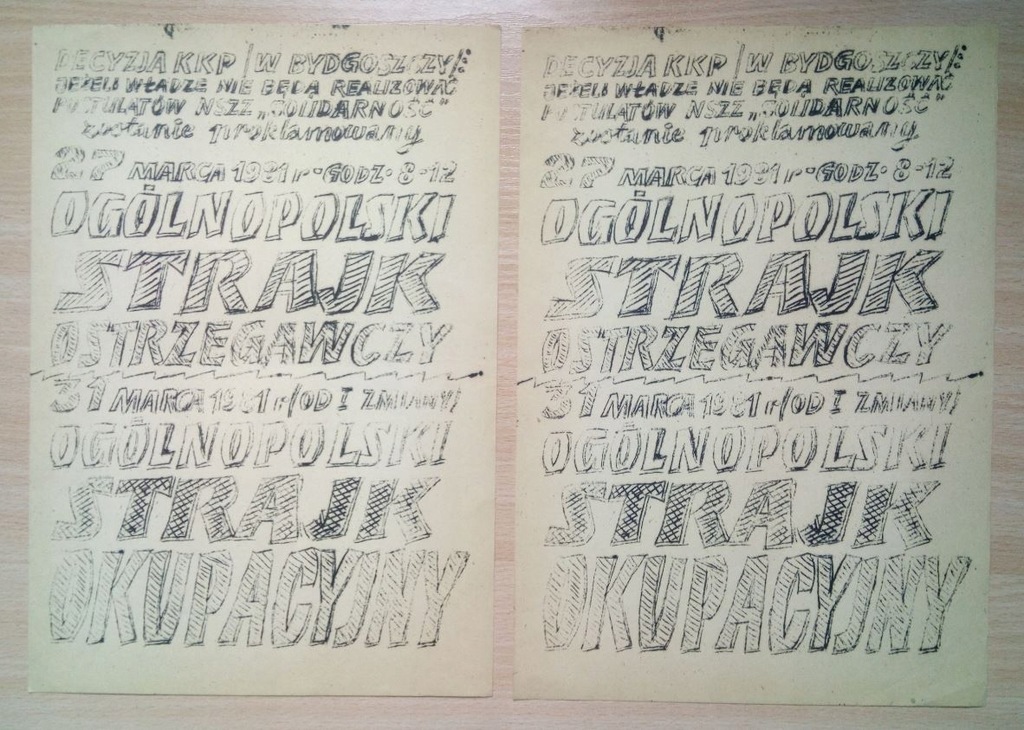 DECYZJA KKP /W BYDGOSZCZY/:
JEŻELI WŁADZE NIE BĘDĄ REALIZOWAĆ
POSTULATÓW NSZZ „SOLIDARNOŚĆ"
zostanie proklamowany
27 MARCA 1981 r - GODZ. 8-12
OGÓLNOPOLSKI
STRAJK
OSTRZEGAWCZY
31 MARCA 1981 r /OD I ZMIANY/
OGÓLNOPOLSKI
STRAJK
OKUPACYJNY
DECYZJA KKP /W BYDGOSZCZY/:
JEŻELI WŁADZE NIE BĘDĄ REALIZOWAĆ
POSTULATÓW NSZZ „SOLIDARNOŚĆ"
zostanie proklamowany
27 MARCA 1981 r - GODZ. 8-12
OGÓLNOPOLSKI
STRAJK
OSTRZEGAWCZY
31 MARCA 1981 r /OD I ZMIANY/
OGÓLNOPOLSKI
STRAJK
OKUPACYJNY